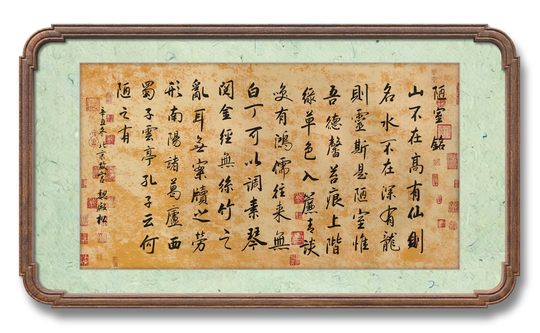 陋室銘
山不在高有仙則
名水不在深有龍
則靈斯是陋室惟
吾德馨苔痕上階
綠草色入簾青談
笑有鴻儒往來無
白丁可以调素琴
閱金經無絲竹之
亂耳無案牘之勞
形南陽諸葛廬西
蜀子雲亭孔子云何
陋之有
辛丑冬北京故宮